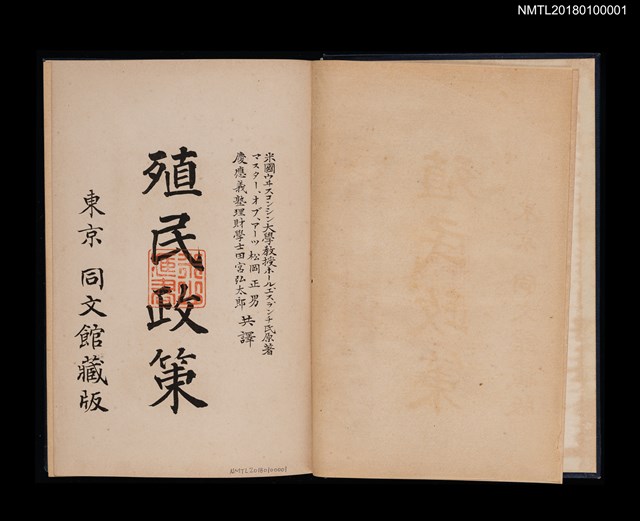 NMTL20180100001
米國ウヰスコンシン大學教授ポールエスランチ氏原著
マスター、オブ、アーツ 松岡正男
慶應義塾理財學士田宮弘太郎 共譯
殖民政策
東京 同文館藏版
NMTL20180100001